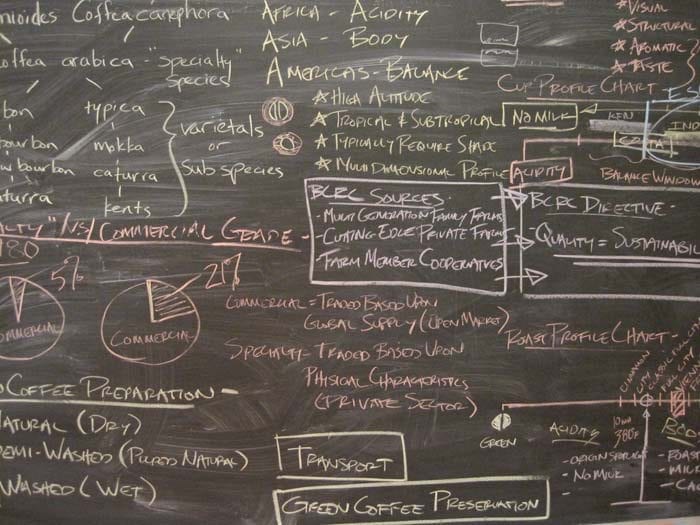 nioides Coffea canephora
offea arabica - "specialty" species
bon typica
ourbon mokka
w bourbon caturra
aturra kents
varietals or Sub species
AFRICA - ACIDITY
ASIA - BODY
AMERICAS - BALANCE
* HIGH ALTITUDE
* TROPICAL & SUBTROPICAL
* TYPICALLY REQUIRE SHADE
* MULTI DIMENSIONAL PROFILE
* VISUAL
* STRUCTURAL
* AROMATIC
* TASTE
CUP PROFILE CHART -
NO MILK
KEN
IND
ACIDITY
BALANCE WINDOW
BCRC SOURCES -
- MULTI GENERATION FAMILY FARMS
- CUTTING EDGE PRIVATE FARMS
- FARM MEMBER COOPERATIVES
BCRC DIRECTIVE -
QUALITY = SUSTAINABIL
LTY" VS / COMMERCIAL GRADE -
180
5%
21%
OMMERCIAL
COMMERCIAL
COMMERCIAL = TRADED BASED UPON
GLOBAL SUPPLY (OPEN MARKET)
SPECIALTY - TRADED BASED UPON
PHYSICAL CHARACTERISTICS
(PRIVATE SECTOR)
ROAST PROFILE CHART -
CINNAMON
CITY
GREEN
ACIDITY
- ORIGIN SPECIFIC
- NO MILK
-
10 min
380F
BODY
- ROAST
COFFEE PREPARATION -
NATURAL (DRY)
DEMI-WASHED (PULPED NATURAL)
WASHED (WET)
TRANSPORT
GREEN COFFEE PRESERVATION